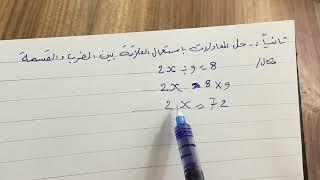 ثانياً :- حل المعادلات باستعمال العلاقة بين الضرب والقسمة
مثال/ 2x ÷ 9 = 8
2x = 8 x 9
2x = 72